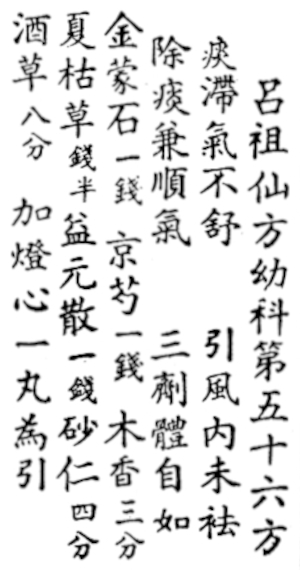 呂祖仙方幼科第五十六方
痰滯氣不舒 引風内未祛
除痰兼順氣 三劑體自如
金蒙石一錢 京芍一錢 木香三分
夏枯草錢半 益元散一錢 砂仁四分
酒草八分 加燈心一丸為引